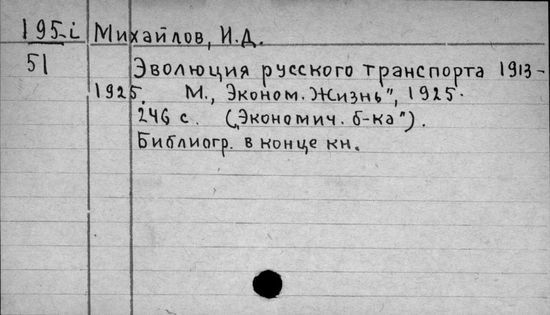 195-i Михайлов, И.Д.
51 Эволюция русского транспорта 1913-
1925. М., Эконом. Жизнь", 1925.
246 с. („Экономич. б-ка").
Библиогр. в конце кн.